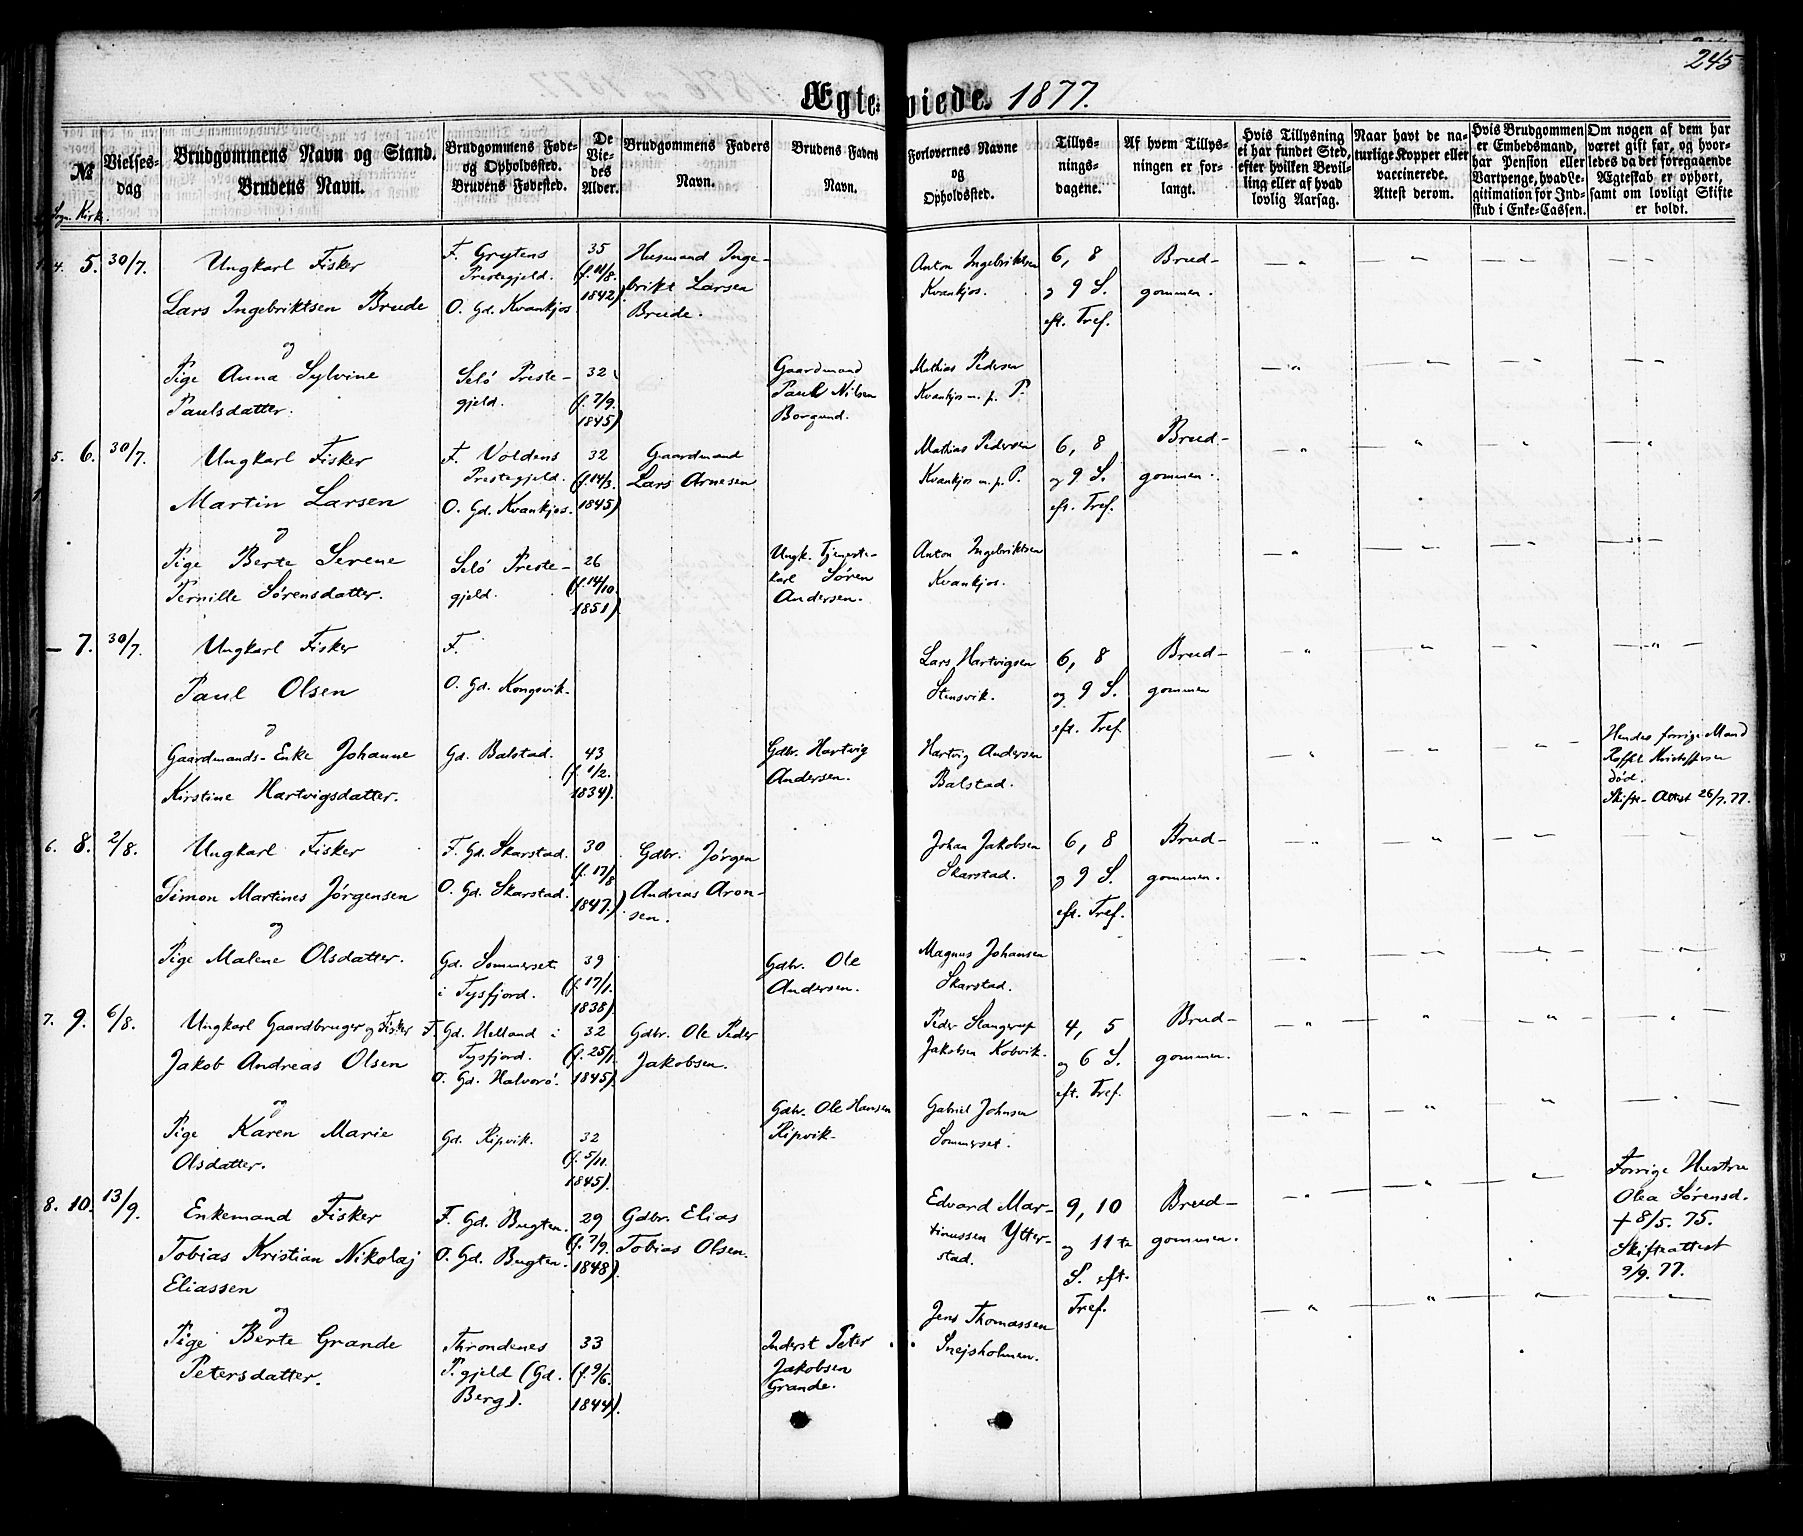 245
Ægteviede. 1877.
№
Vielses-
dag
Brudgommens Navn og Stand.
Brudens Navn.
Brudgommens Føde-
og Opholdssted.
Brudens Fødested.
De
Vie-
des
Alder.
Brudgommens Faders
Navn.
Brudens Faders
Navn.
Forlovernes Navne
og
Opholdssted.
Tillys-
nings-
dagene.
Af hvem Tillys-
ningen er for-
langt.
Hvis Tillysning
ei har fundet Sted,
efter hvilken Bevil-
ling eller af hvad
lovlig Aarsag.
Naar havt de na-
turlige Kopper eller
vaccinerede.
Attest derom.
Hvis Brudgommen
er Embedsmand,
har Pension eller
Vartpenge, hvad Le-
gitimation for Ind-
skud i Enke-Cassen.
Om nogen af dem har
været gift før, og hvor-
ledes da det foregaaende
Ægteskab er ophørt,
samt om lovligt Skifte
er holdt.
Sogn. Kirk.
4. 5. 30/7.
Ungkarl Fisker
Lars Ingebriktsen Brude
og
Pige Anna Sylvine
Paulsdatter.
F. Grytens
Prestegjeld.
O. Gd. Kvankjos.
Selö Preste-
gjeld.
35
(f. 11/8.
1842)
32
(f. 7/9.
1845)
Husmand Inge-
brikt Larsen
Brude.
Gaardmand
Paul Nilsen
Borgund.
Anton Ingebriktsen
Kvankjos.
Mathias Pedersen
Kvankjos m. p. P.
6, 8
og 9 S.
eft. Tref.
Brud-
gommen.
5. 6. 30/7.
Ungkarl Fisker
Martin Larsen
og
Pige Berte Serene
Pernille Sörensdatter.
F. Voldens
Prestegjeld.
O. Gd. Kvankjos.
Selö Preste-
gjeld.
32
(f. 14/3.
1845)
26
(f. 14/10
1851)
Gaardmand
Lars Arnesen
Ungk. Tjeneste-
karl Sören
Andersen.
Mathias Pedersen
Kvankjos m. p. P.
Anton Ingebriktsen
Kvankjos.
6, 8
og 9 S.
eft. Tref.
Brud-
gommen.
– 7. 30/7.
Ungkarl Fisker
Paul Olsen
og
Gaardmands-Enke Johanne
Kirstine Hartvigsdatter.
F.
O. Gd. Kongsvik.
Gd. Balstad.
43
(f. 1/2.
1834).
Gdbr. Hartvig
Andersen.
Lars Hartvigsen
Stensvik.
Hartvig Andersen
Balstad.
6, 8
og 9 S.
eft. Tref
Brud-
gommen
Hendes forrige Mand
Kristoffersen
död.
Skifte-Attest 26/7. 77.
6. 8. 2/8.
Ungkarl Fisker
Simon Martines Jörgensen
og
Pige Malene Olsdatter.
F. Gd. Skarstad.
O. Gd. Skarstad.
Gd. Sommerset
i Tysfjord.
30
(f. 17/8
1847.)
39
(f. 17/1.
1838)
Gdbr. Jörgen
Andreas Aron-
sen.
Gdbr. Ole
Andersen.
Johan Jakobsen
Skarstad.
Magnus Johansen
Skarstad.
6, 8
og 9 S.
eft. Tref.
Brud-
gommen.
7. 9. 6/8.
Ungkarl Gaardbruger og Fisker
Jakob Andreas Olsen
og
Pige Karen Marie
Olsdatter.
F. Gd. Helland i
Tysfjord.
O. Gd. Halvorö.
Gd. Ripvik.
32
(f. 25/1.
1845)
32
(f. 5/11.
1845).
Gdbr. Ole Peder
Jakobsen.
Gdbr. Ole Hansen
Ripvik.
Peder Slangerup
Jakobsen Kobvik.
Gabriel Johnsen
Sommerset.
4, 5
og 6 S.
eft. Tref.
Brud-
gommen.
8. 10. 13/9.
Enkemand Fisker
Tobias Kristian Nikolaj
Eliassen
og
Pige Berte Grande
Petersdatter.
F. Gd. Bugten.
O. Gd. Bugten.
Throndenes
P.gjeld (Gd.
Berg).
29
(f. 7/9.
1848).
33
(f. 9/6.
1844).
Gdbr. Elias
Tobias Olsen.
Inderst Peter
Jakobsen
Grande.
Edvard Mar-
tinussen Ytter-
stad.
Jens Thomassen
Snejsholmen.
9, 10
og 11te
S. eft.
Tref.
Brud-
gommen.
Forrige Hustru
Olea Sörensd.
† 8/5. 75.
Skifteattest
9/9. 77.